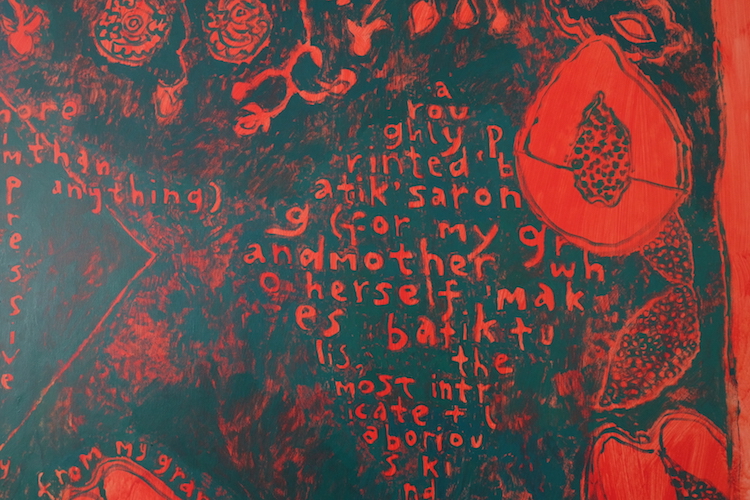 more
than
anything)
impressive
a
rou
ghly p
rinted 'b
atik' saron
g (for my gr
andmother wh
o herself mak
es batik tu
lis, the
most intr
icate + l
aboriou
s ki
nd
from my gran